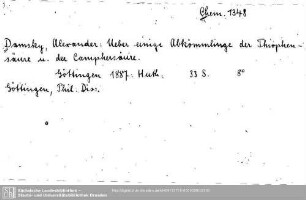 Chem. 1348
Damsky, Alexander: Ueber einige Abkömmlinge der Thiophen-
säure u. der Camphersäure.
Göttingen 1887: Huth. 33 S. 8°
Göttingen, Phil. Diss.
Sächsische Landesbibliothek -
Staats- und Universitätsbibliothek Dresden